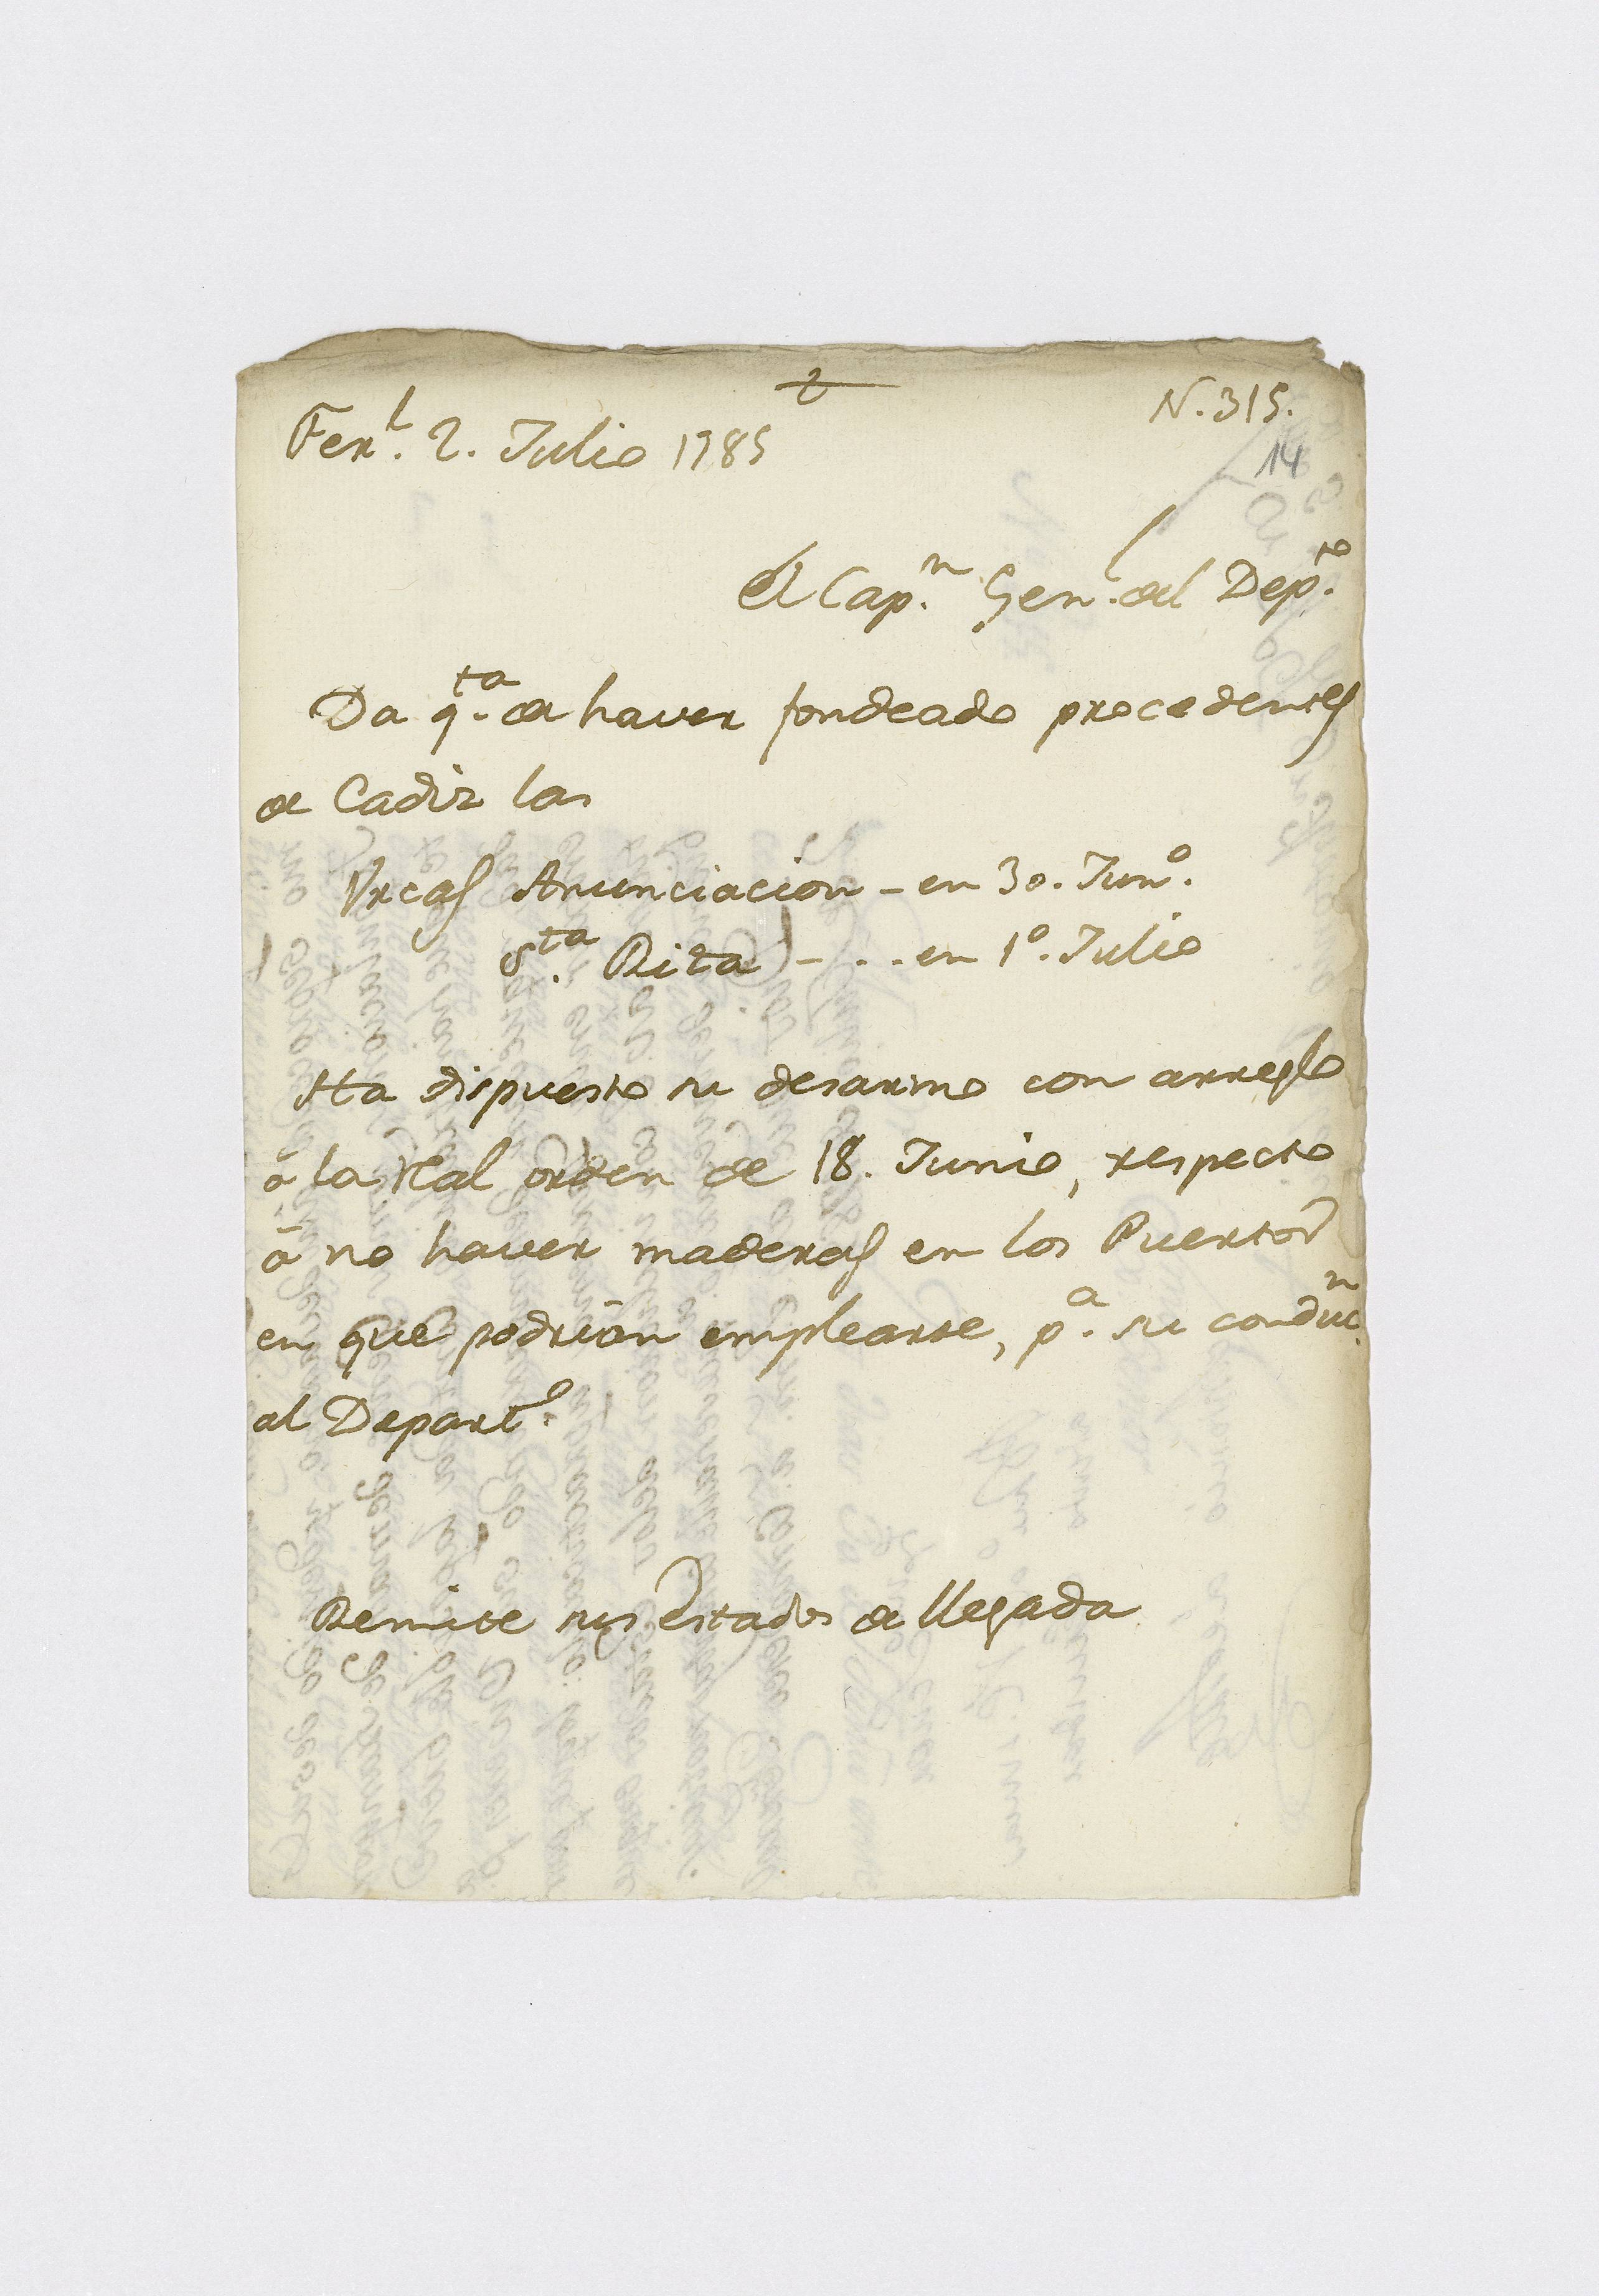 N. 315.
Ferˡ. 2. Julio 1785
14
El Capⁿ. Genˡ. del Depᵗᵒ.
Da qᵗᵃ. de haver fondeado procedentes
de Cadiz las
Vrcas Anunciacion - en 30. Junº.
Sᵗᵃ. Rita - . . . en 1º. Julio
Ha dispuesto su desarmo con arreglo
á la Rˡ orden de 18. Junio, respecto
á no haver maderas en los Puertos
en que podrian emplearse, pᵃ. su conducⁿ.
al Departº.
Remite sus Estados de llegada